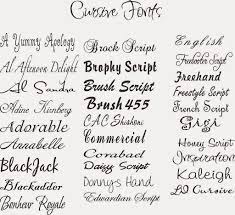 Cursive Fonts
A Yummy Apology
Al Afternoon Delight
Al Sandra
Adine Kirnberg
Adorable
Annabelle
BlackJack
Blackadder
Bonheur Royale
Brock Script
Brophy Script
Brush Script
Brush 455
C.A.C. Shishoni
Commercial
Corabael
Daisy Script
Donnys Hand
Edwardian Script
English
Script
Freehand
Freestyle Script
French Script
Gigi
Honey Script
Inspiration
Kaleigh
LD Cursive